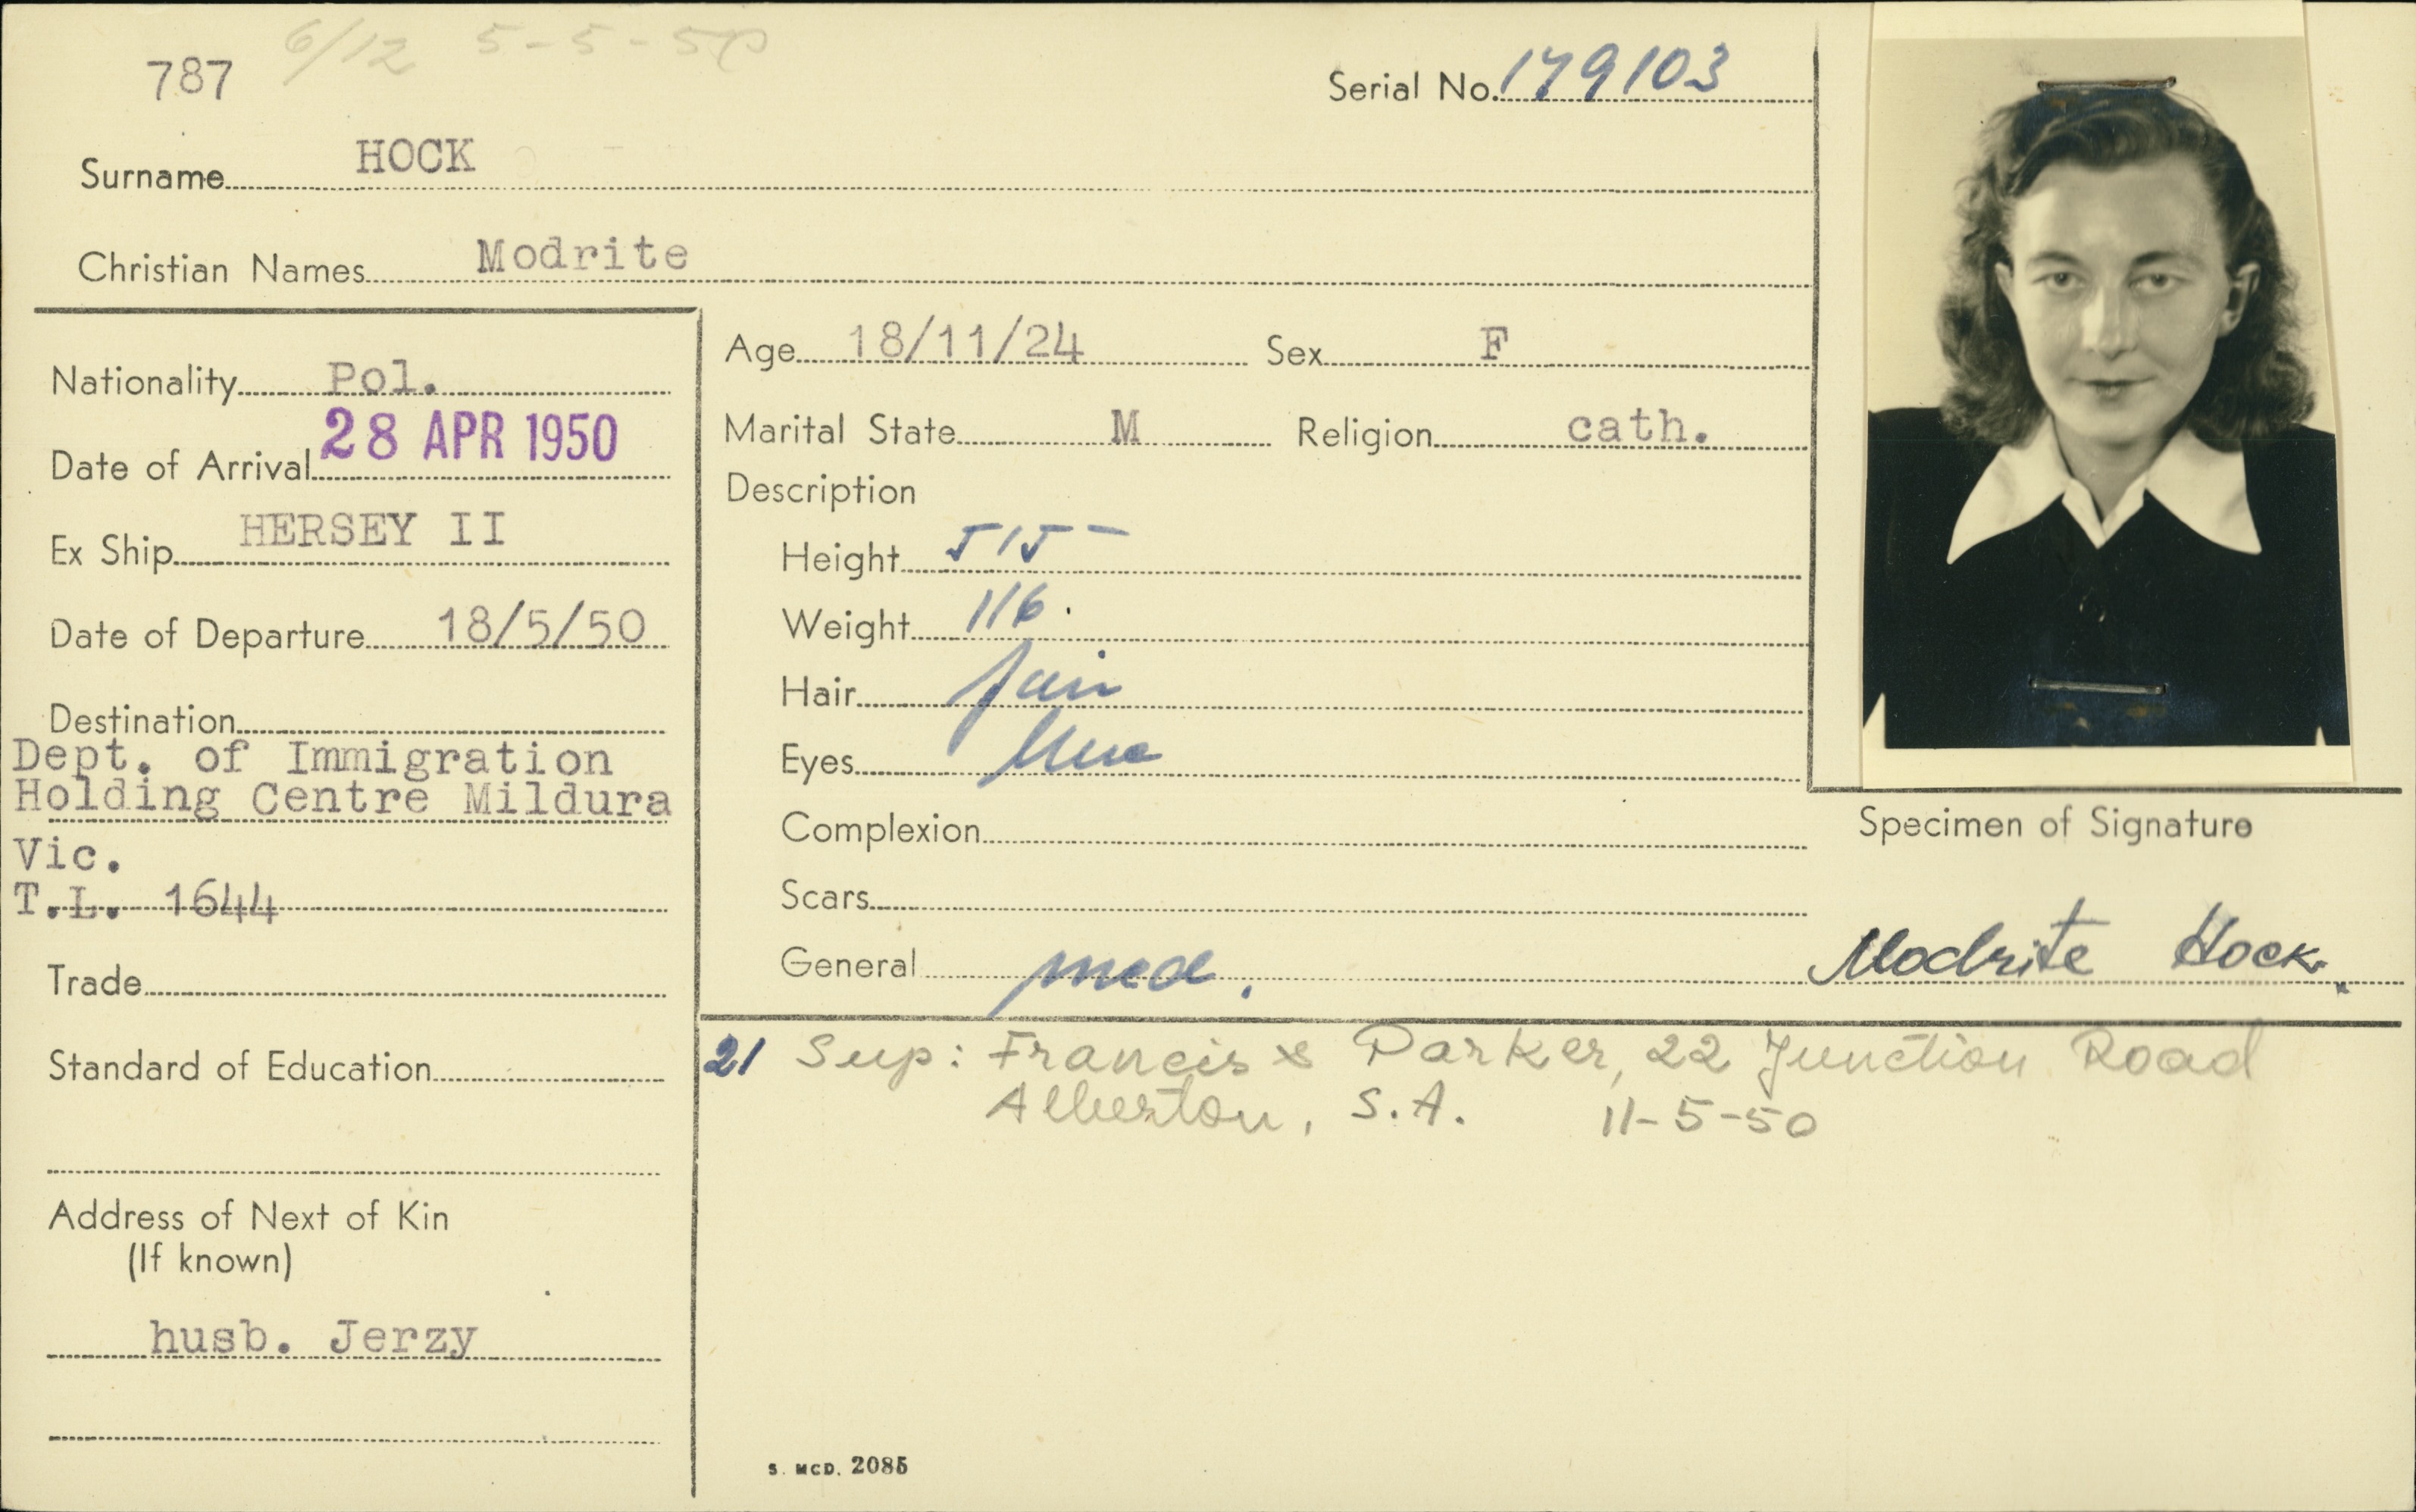 787 6/12 5-5-50
Serial No. 179103
Surname HOCK
Christian Names Modrite
Nationality Pol.
Date of Arrival 28 APR 1950
Ex Ship HERSEY II
Date of Departure 18/5/50
Destination
Dept. of Immigration
Holding Centre Mildura
Vic.
T.L. 1644
Trade
Standard of Education
Address of Next of Kin
(If known)
husb. Jerzy
Age 18/11/24 Sex F
Marital State M Religion cath.
Description
Height 5/5 -
Weight 116.
Hair fair
Eyes blue
Complexion
Scars
General med.
Specimen of Signature
Modrite Hock.
21 Sup: Francis & Parker, 22 Junction Road
Alberton, S.A. 11-5-50
S. MCD. 2085